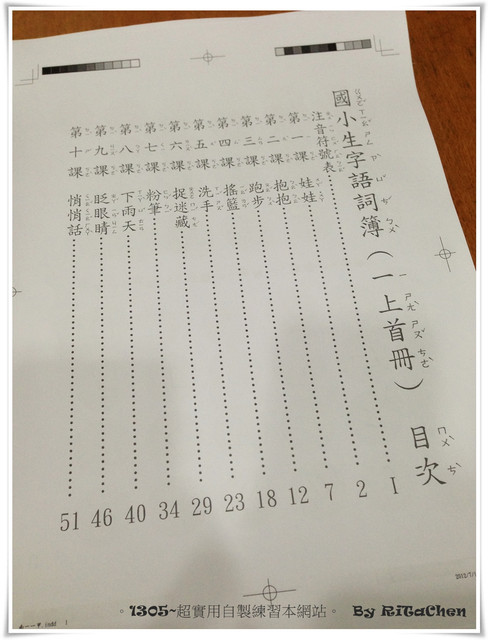 國小生字語詞簿(一上首冊) 目次
注音符號表 1
第一課 娃娃 2
第二課 抱抱 7
第三課 跑步 12
第四課 搖籃 18
第五課 洗手 23
第六課 捉迷藏 29
第七課 粉筆 34
第八課 下雨天 40
第九課 眨眼睛 46
第十課 悄悄話 51
。1305~超實用自製練習本網站。 By RiTaChen